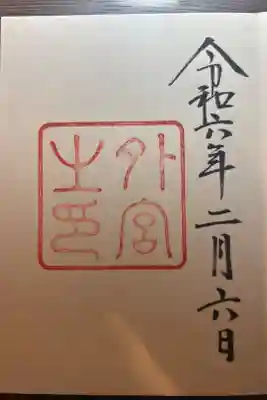 令和六年二月六日
外宮
之印